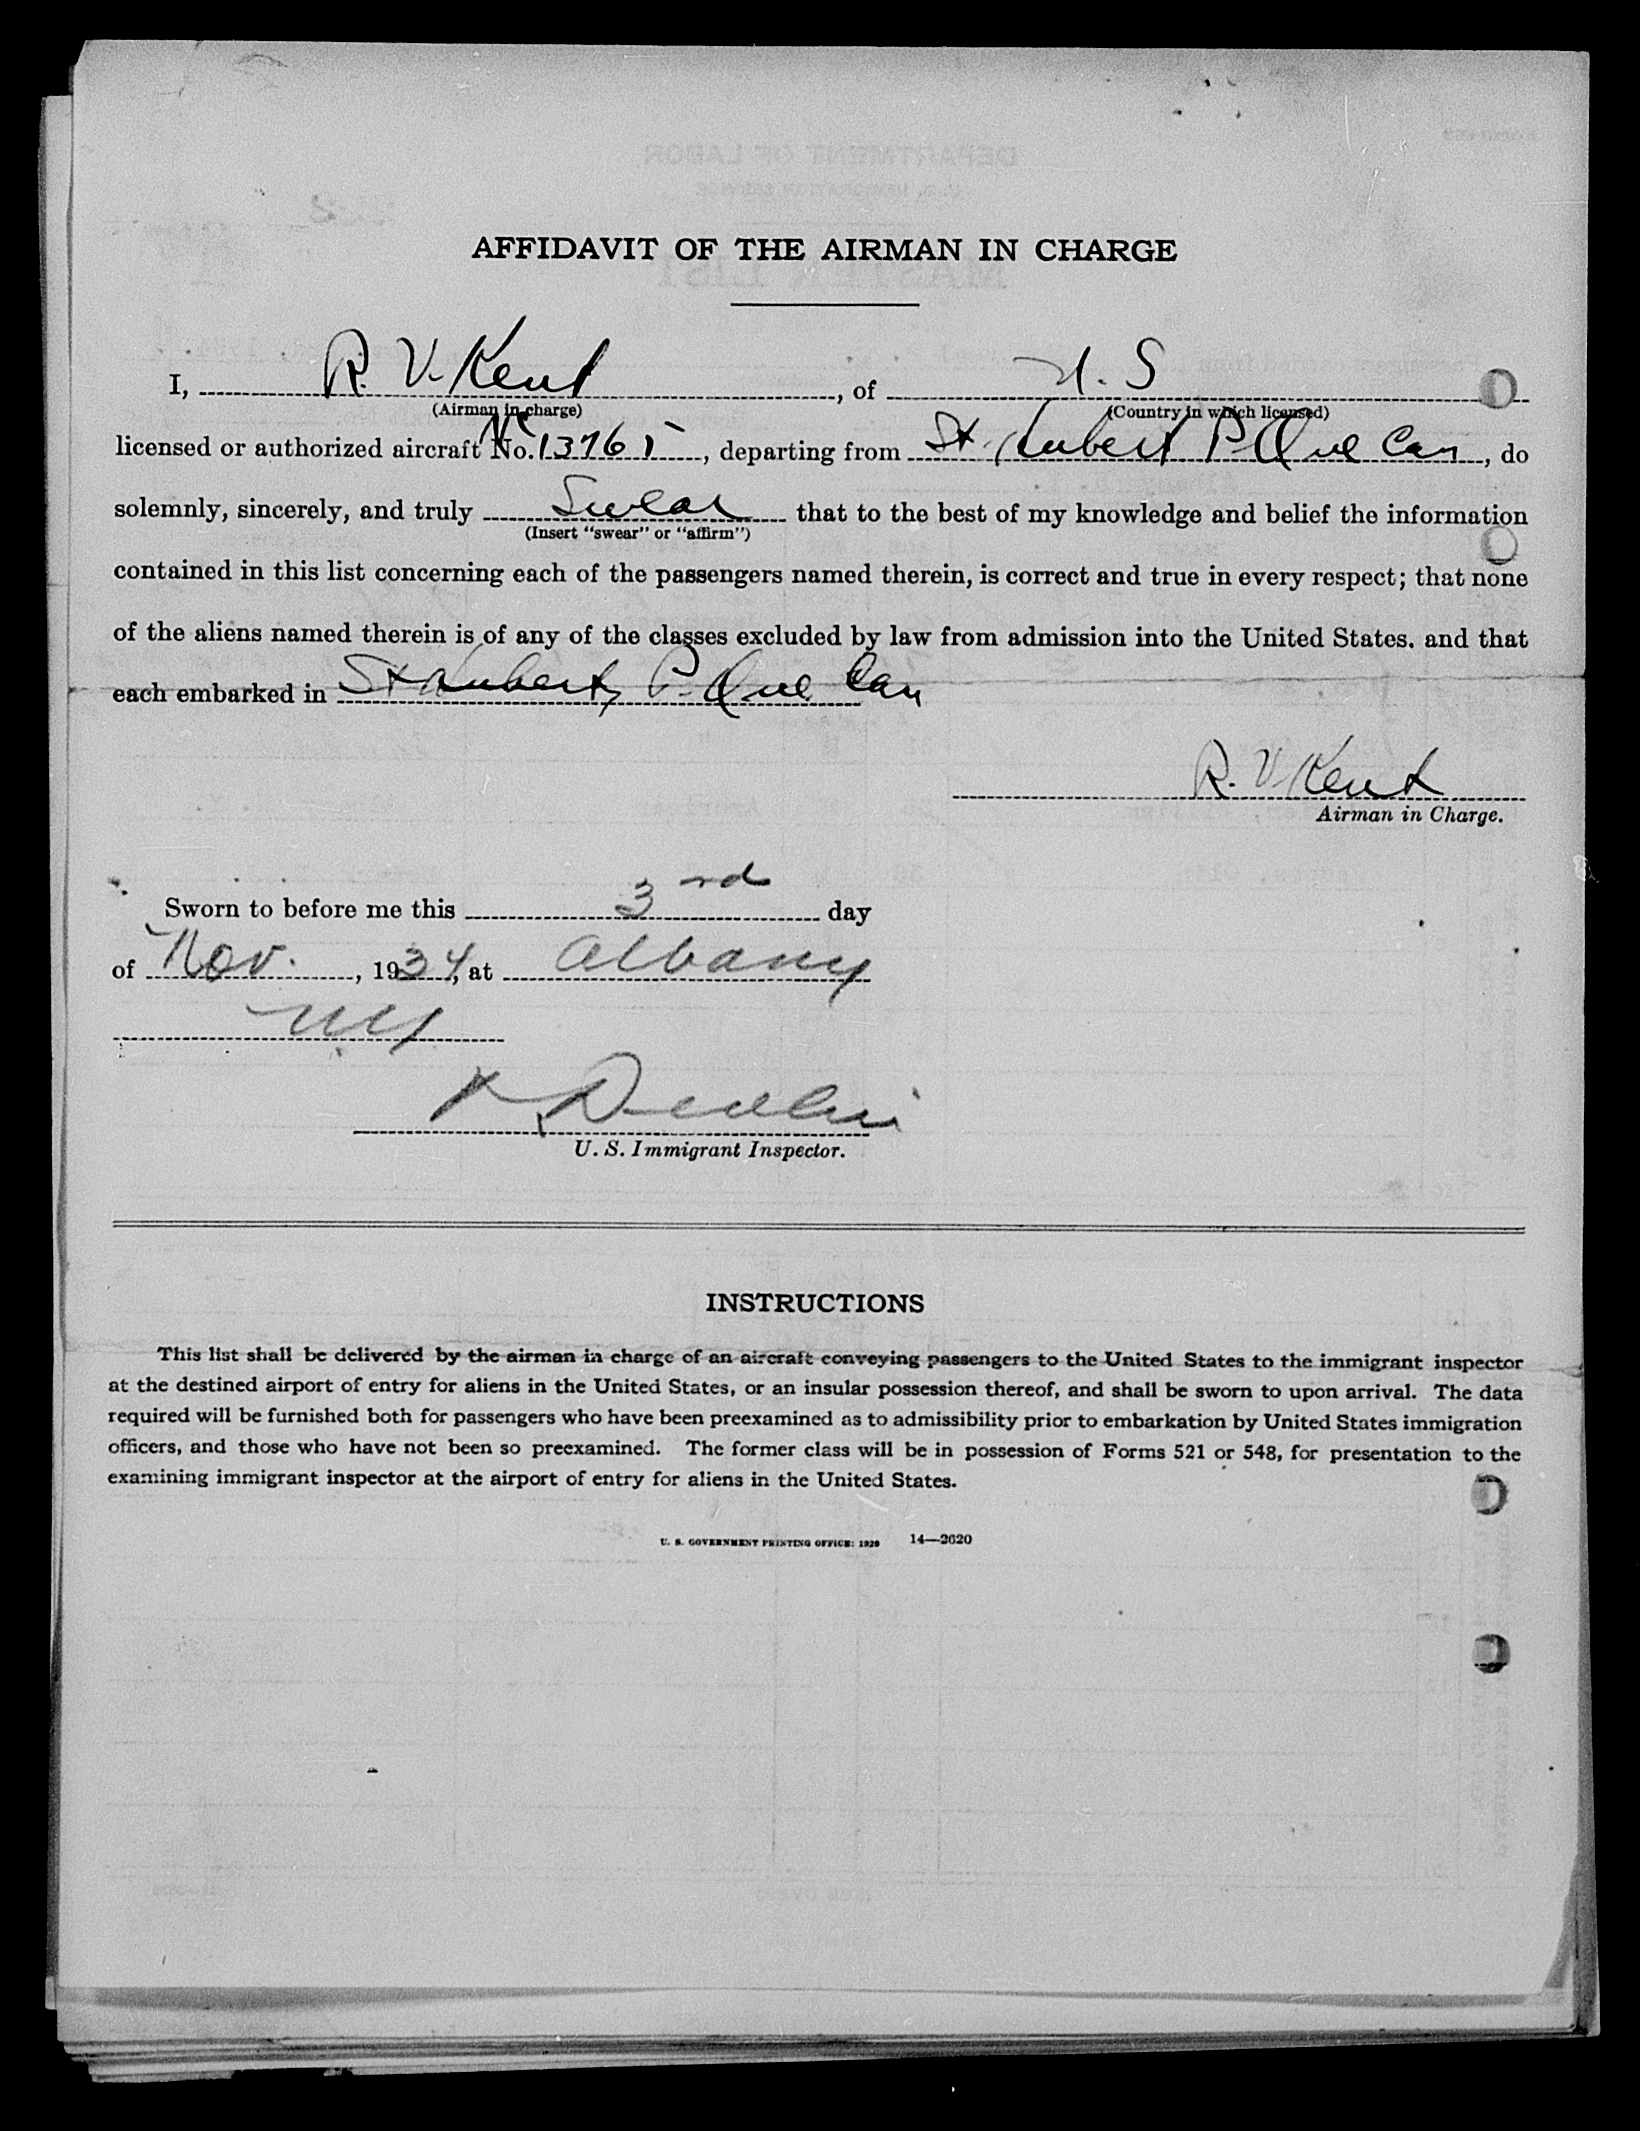 AFFIDAVIT OF THE AIRMAN IN CHARGE
I, R. V. Kent, of U. S
(Airman in charge) (Country in which licensed)
licensed or authorized aircraft No. Nc 13765, departing from St. Hubert P. Que Can, do
solemnly, sincerely, and truly Swear that to the best of my knowledge and belief the information
(Insert "swear" or "affirm")
contained in this list concerning each of the passengers named therein, is correct and true in every respect; that none
of the aliens named therein is of any of the classes excluded by law from admission into the United States. and that
each embarked in St Hubert, P. Que Can
R. V Kent
Airman in Charge.
Sworn to before me this 3rd day
of Nov., 1934, at Albany
NY
Devlin
U. S. Immigrant Inspector.
INSTRUCTIONS
This list shall be delivered by the airman in charge of an aircraft conveying passengers to the United States to the immigrant inspector
at the destined airport of entry for aliens in the United States, or an insular possession thereof, and shall be sworn to upon arrival. The data
required will be furnished both for passengers who have been preexamined as to admissibility prior to embarkation by United States immigration
officers, and those who have not been so preexamined. The former class will be in possession of Forms 521 or 548, for presentation to the
examining immigrant inspector at the airport of entry for aliens in the United States.
U. S. GOVERNMENT PRINTING OFFICE: 1929 14—2620